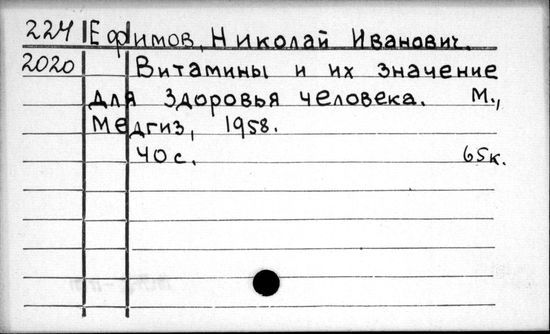 224 Ефимов, Николай Иванович.
2020 Витамины и их значение
для здоровья человека. М.,
Медгиз, 1958.
40 с. 65к.